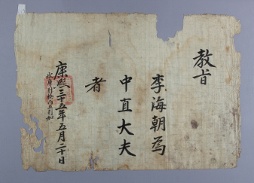 教旨
李海朝為
中直大夫
者
康熙三十五年五月二十日